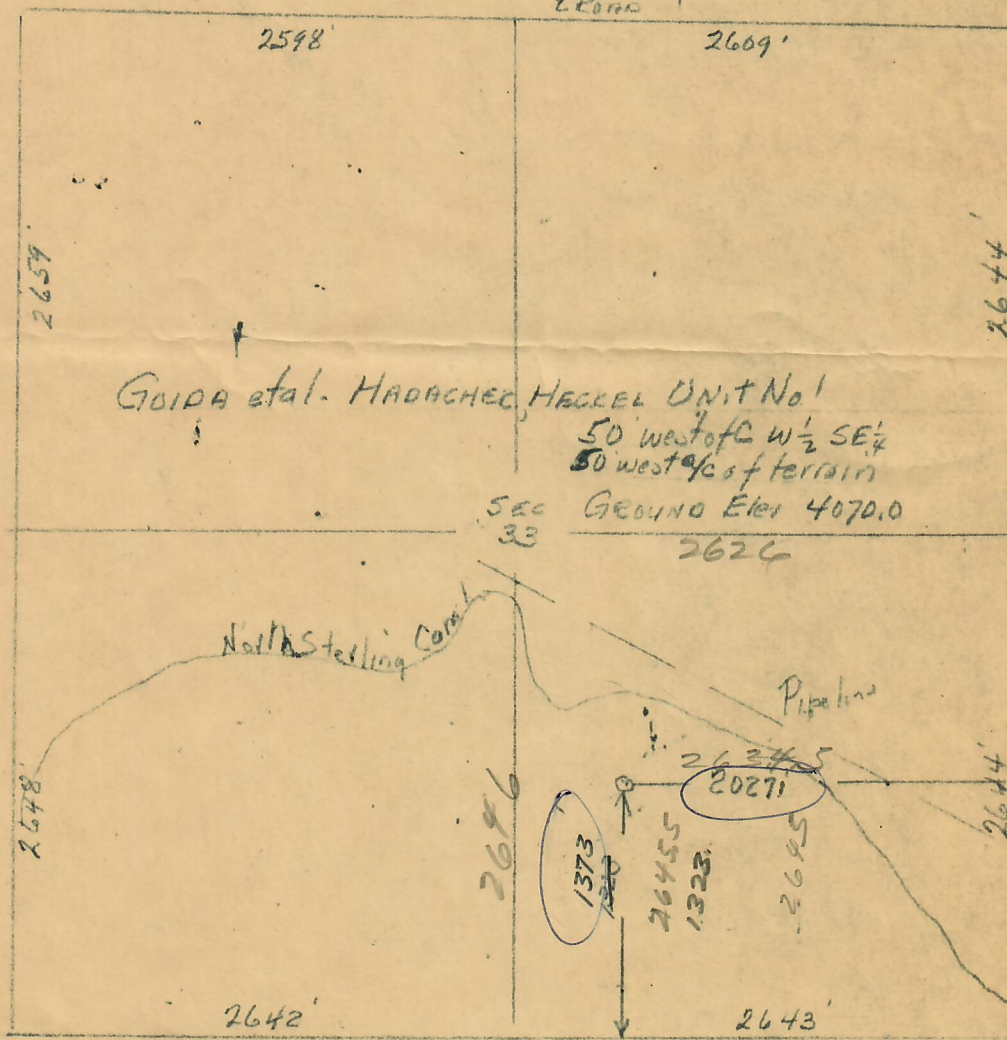 2598'
2609'
2659'
2644'
Goida etal. Hadachek, Heckel Unit No 1
50' west of C W ½ SE ¼
50' west a/c of terrain
SEC
33
Ground Elev 4070.0
2626
North Sterling Canal
Pipeline
2648'
2646
2027'
2644'
1373'
1320
26455
1323.
2645
2642'
2643'